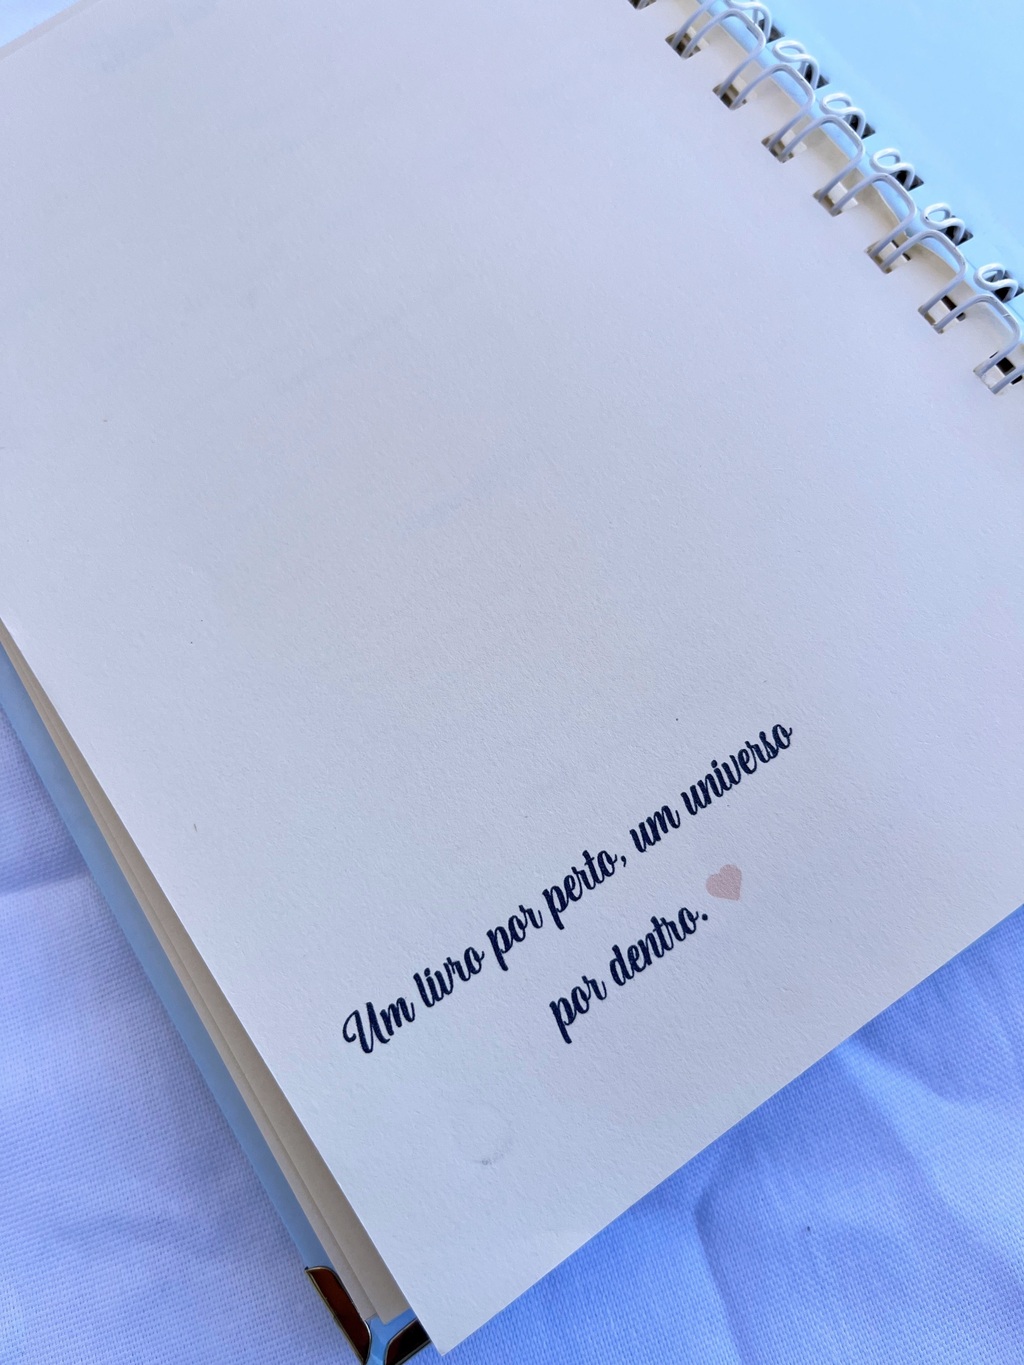 Um livro por perto, um universo
por dentro.